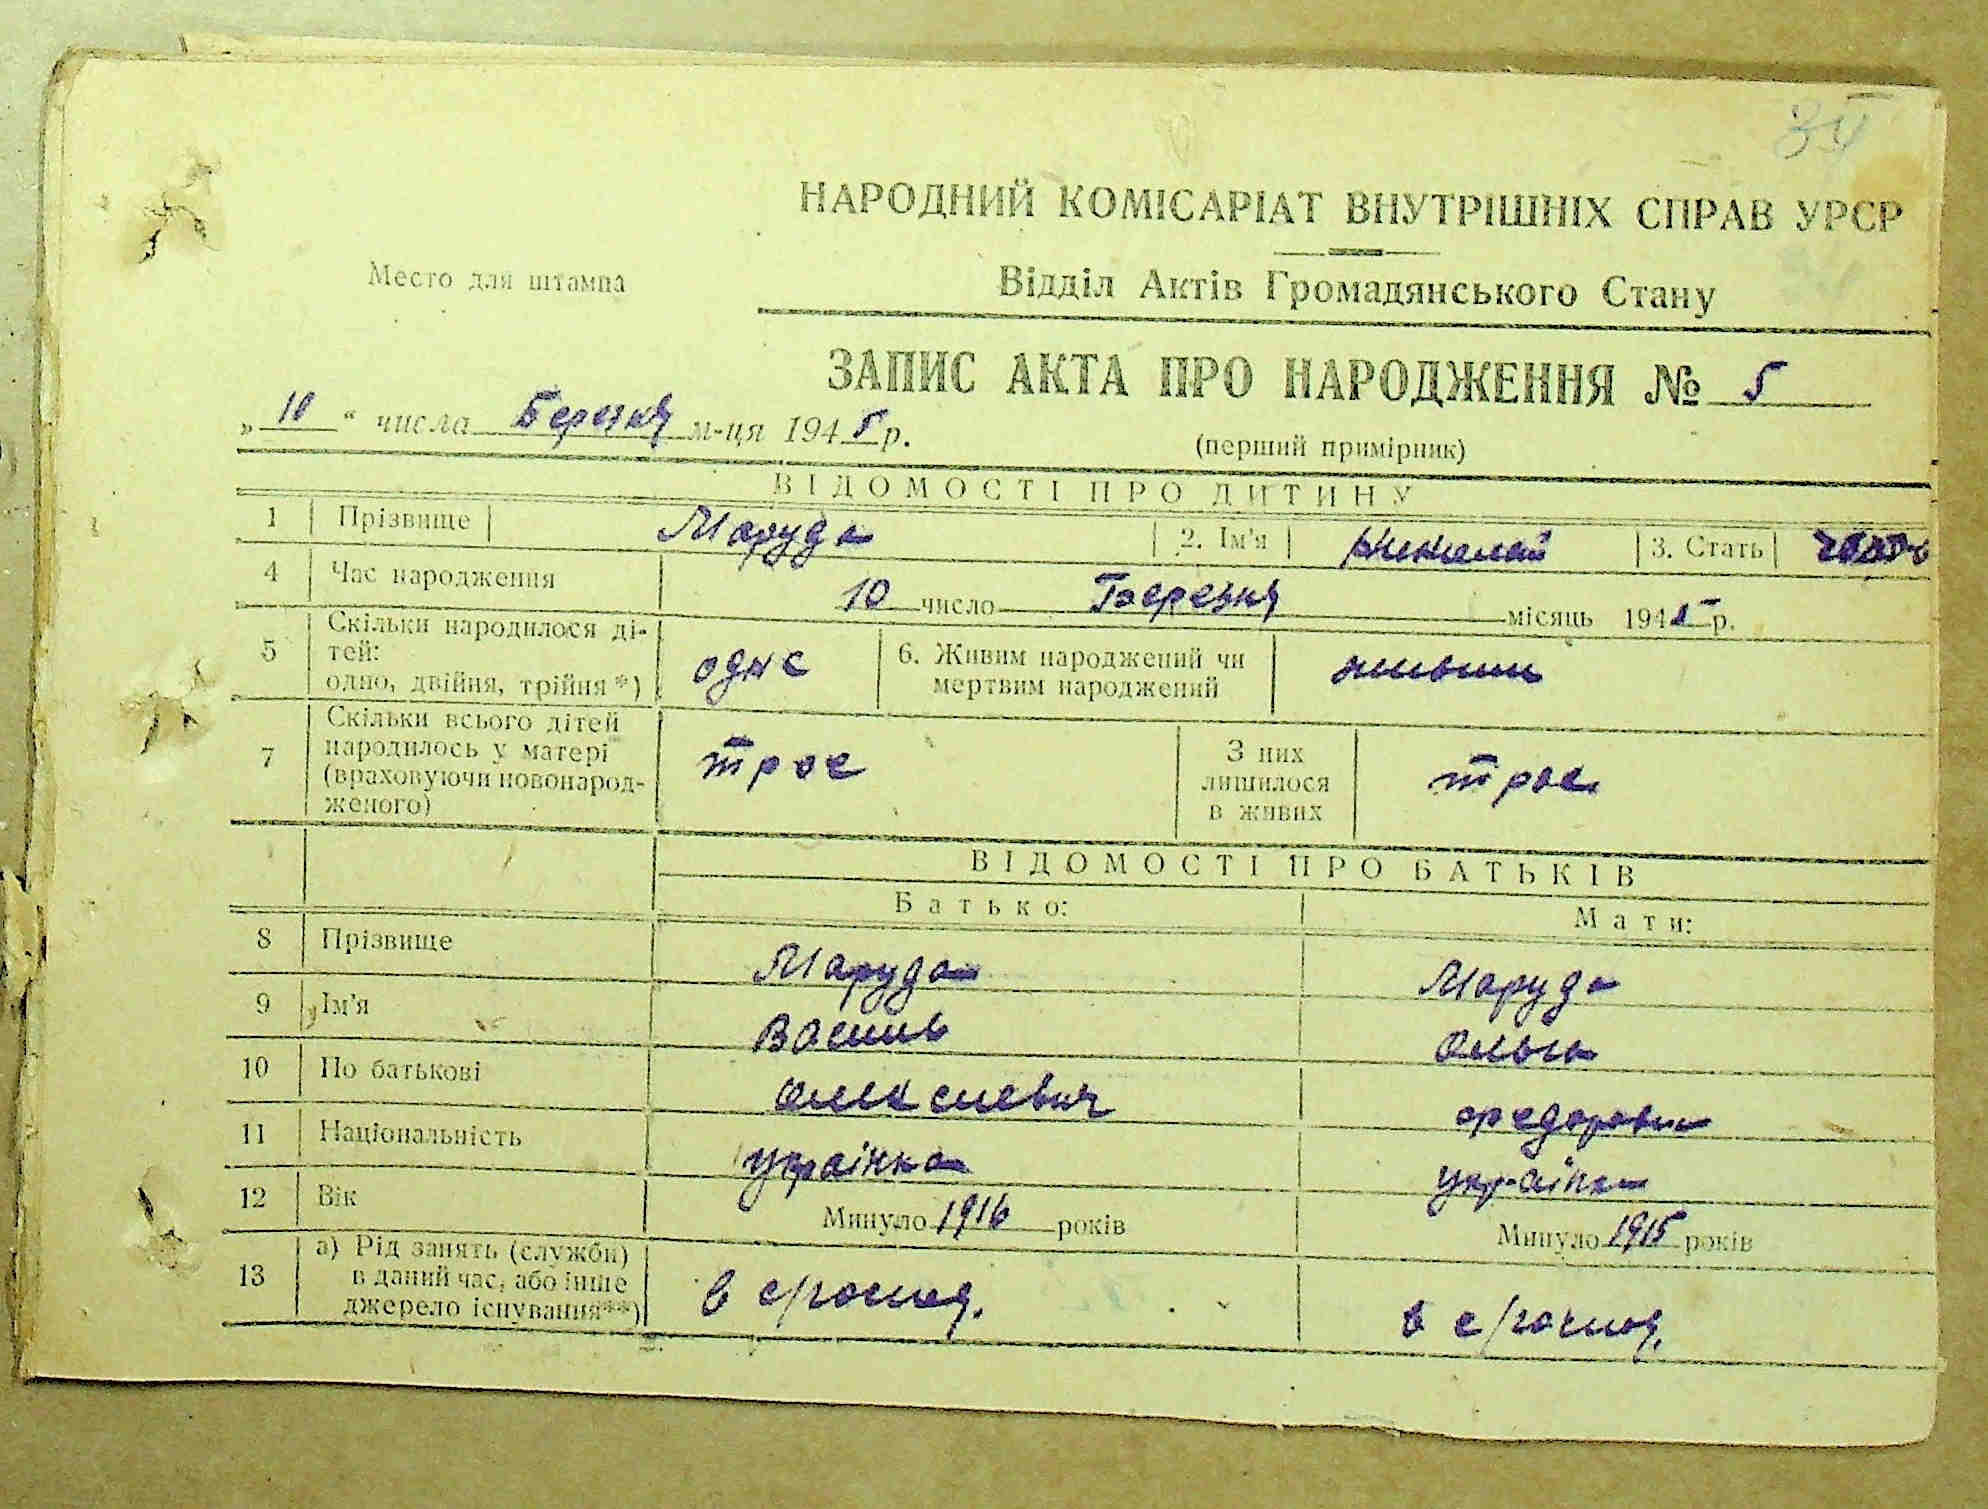 34
НАРОДНИЙ КОМІСАРІАТ ВНУТРІШНІХ СПРАВ УРСР
Место для штампа
Відділ Актів Громадянського Стану
ЗАПИС АКТА ПРО НАРОДЖЕННЯ № 5
„ 10 “ числа Березня м-ця 1945 р.
(перший примірник)
ВІДОМОСТІ ПРО ДИТИНУ
1 Прізвище Маруда 2. Ім'я Николай 3. Стать
4 Час народження 10 число Березня місяць 1945 р.
5 Скільки народилося ді-
тей:
одно, двійня, трійня *) одне 6. Живим народжений чи
мертвим народжений живим
7 Скільки всього дітей
народилось у матері
(враховуючи новонарод-
женого) троє З них
лишилося
в живих троє
ВІДОМОСТІ ПРО БАТЬКІВ
Батько: Мати:
8 Прізвище Маруда Маруда
9 Ім'я Василь Ольга
10 По батькові Олексиевич Федоровн
11 Національність українка українка
12 Вік Минуло 1916 років Минуло 1915 років
13 а) Рід занять (служби)
в даний час, або інше
джерело існування**) в с/господ. в с/господ.